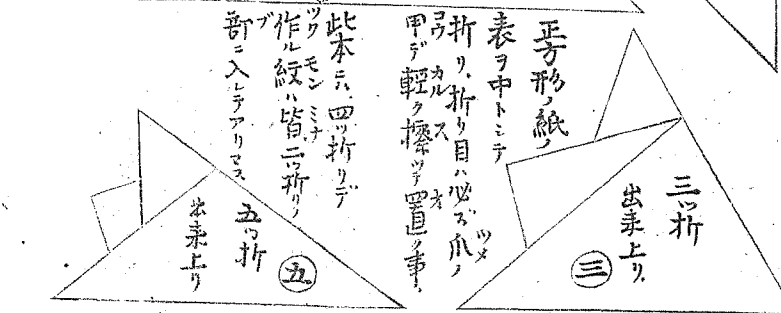 正方形ノ紙ノ
表ヲ中トシテ
折リ、折リ目ハ必ズ爪ノ
甲デ輕ク擦ツテ置ク事、
此本ニハ、四ツ折リデ
作ル紋ハ皆二ツ折リノ
部ニ入レテアリマス
三ツ折
出来上リ、
三
五ツ折
出来上リ
五